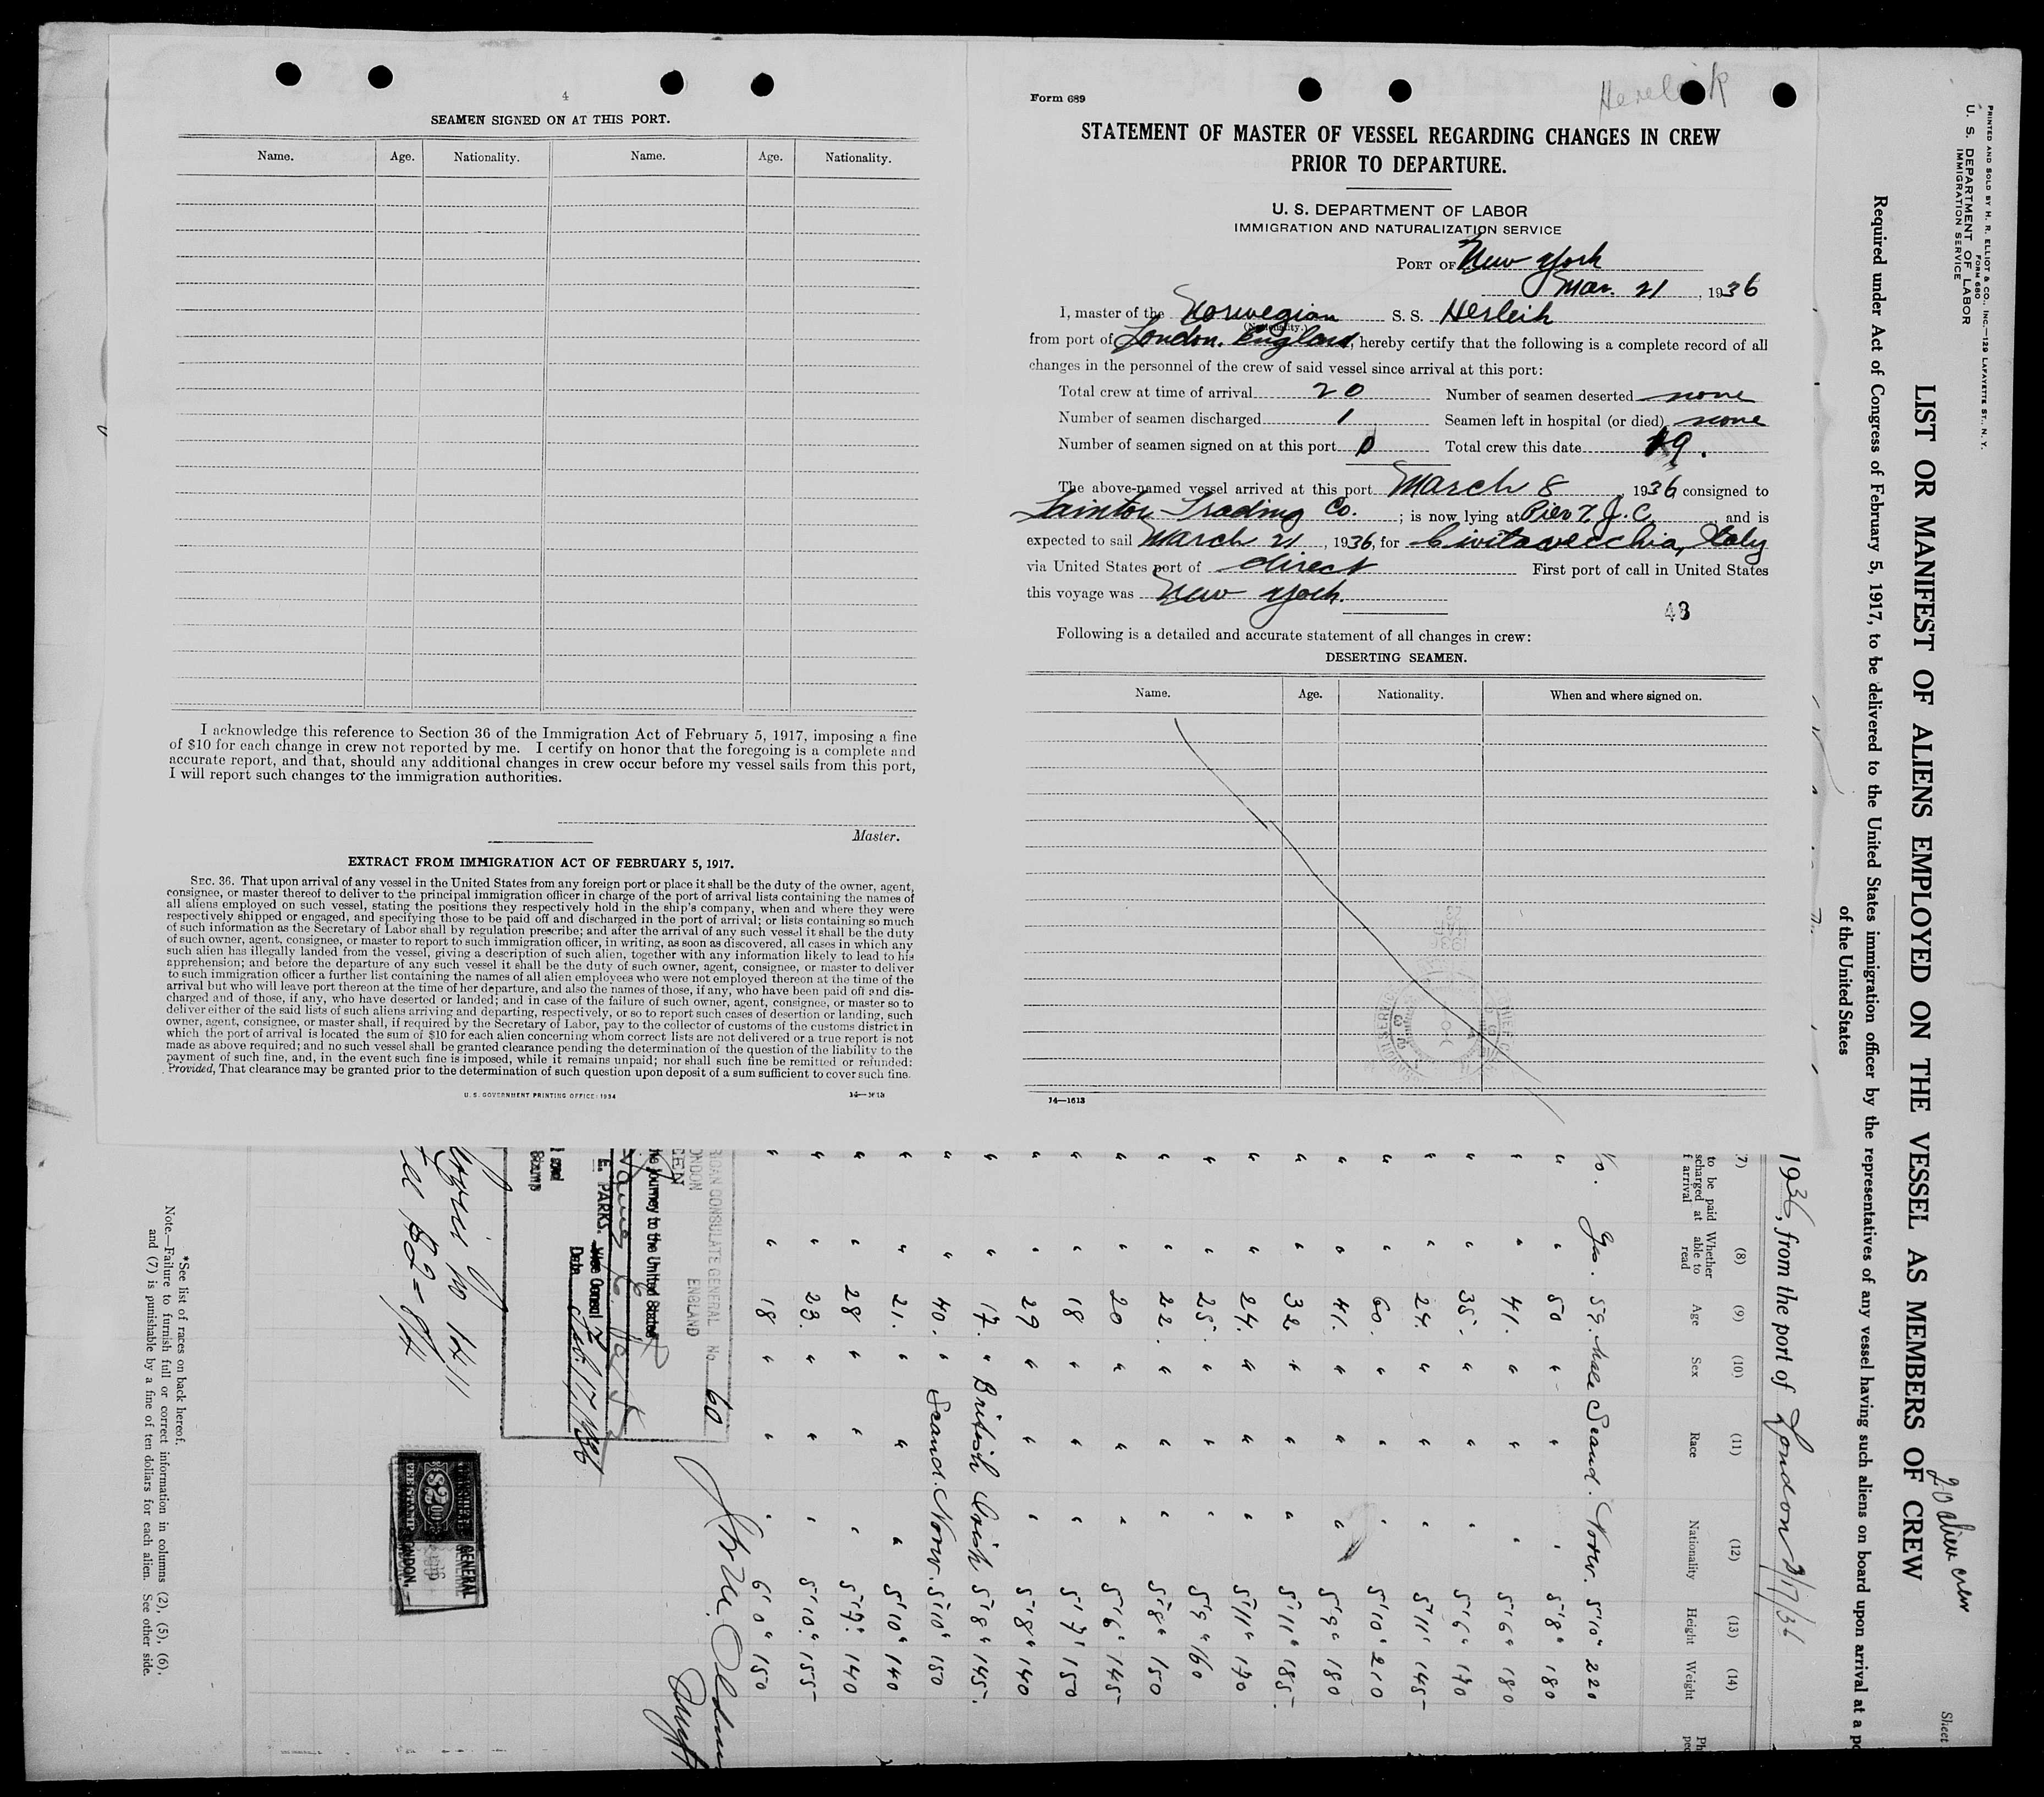 4
SEAMEN SIGNED ON AT THIS PORT.
Name. Age. Nationality. Name. Age. Nationality.
I acknowledge this reference to Section 36 of the Immigration Act of February 5, 1917, imposing a fine
of $10 for each change in crew not reported by me. I certify on honor that the foregoing is a complete and
accurate report, and that, should any additional changes in crew occur before my vessel sails from this port,
I will report such changes to the immigration authorities.
Master.
EXTRACT FROM IMMIGRATION ACT OF FEBRUARY 5, 1917.
SEC. 36. That upon arrival of any vessel in the United States from any foreign port or place it shall be the duty of the owner, agent,
consignee, or master thereof to deliver to the principal immigration officer in charge of the port of arrival lists containing the names of
all aliens employed on such vessel, stating the positions they respectively hold in the ship's company, when and where they were
respectively shipped or engaged, and specifying those to be paid off and discharged in the port of arrival; or lists containing so much
of such information as the Secretary of Labor shall by regulation prescribe; and after the arrival of any such vessel it shall be the duty
of such owner, agent, consignee, or master to report to such immigration officer, in writing, as soon as discovered, all cases in which any
such alien has illegally landed from the vessel, giving a description of such alien, together with any information likely to lead to his
apprehension; and before the departure of any such vessel it shall be the duty of such owner, agent, consignee, or master to deliver
to such immigration officer a further list containing the names of all alien employees who were not employed thereon at the time of the
arrival but who will leave port thereon at the time of her departure, and also the names of those, if any, who have been paid off and dis-
charged and of those, if any, who have deserted or landed; and in case of the failure of such owner, agent, consignee, or master so to
deliver either of the said lists of such aliens arriving and departing, respectively, or so to report such cases of desertion or landing, such
owner, agent, consignee, or master shall, if required by the Secretary of Labor, pay to the collector of customs of the customs district in
which the port of arrival is located the sum of $10 for each alien concerning whom correct lists are not delivered or a true report is not
made as above required; and no such vessel shall be granted clearance pending the determination of the question of the liability to the
payment of such fine, and, in the event such fine is imposed, while it remains unpaid; nor shall such fine be remitted or refunded:
Provided, That clearance may be granted prior to the determination of such question upon deposit of a sum sufficient to cover such fine.
U. S. GOVERNMENT PRINTING OFFICE: 1934 14—1613
Form 689
Herleik
STATEMENT OF MASTER OF VESSEL REGARDING CHANGES IN CREW
PRIOR TO DEPARTURE.
U. S. DEPARTMENT OF LABOR
IMMIGRATION AND NATURALIZATION SERVICE
PORT OF New York
Mar. 21, 1936
I, master of the Norwegian S. S. Herleik
(Nationality.)
from port of London. England, hereby certify that the following is a complete record of all
changes in the personnel of the crew of said vessel since arrival at this port:
Total crew at time of arrival 20 Number of seamen deserted none
Number of seamen discharged 1 Seamen left in hospital (or died) none
Number of seamen signed on at this port 0 Total crew this date 19.
The above-named vessel arrived at this port March 8, 1936 consigned to
Trading Co.; is now lying at Pier 7. J. C. and is
expected to sail March 21, 1936, for Civitavecchia, Italy
via United States port of direct First port of call in United States
this voyage was New York.
43
Following is a detailed and accurate statement of all changes in crew:
DESERTING SEAMEN.
Name. Age. Nationality. When and where signed on.
14—1613
PRINTED AND SOLD BY H. R. ELLIOT & CO., INC.—129 LAFAYETTE ST., N. Y.
FORM 680
U. S. DEPARTMENT OF LABOR
IMMIGRATION SERVICE
20 alien crew
Sheet
LIST OR MANIFEST OF ALIENS EMPLOYED ON THE VESSEL AS MEMBERS OF CREW
Required under Act of Congress of February 5, 1917, to be delivered to the United States immigration officer by the representatives of any vessel having such aliens on board upon arrival at a po
of the United States
1936, from the port of London 2/17/36
7) (8) (9) (10) (11) (12) (13) (14)
to be paid scharged at f arrival Whether able to read Age Sex Race Nationality Height Weight
Yes. 59. Male Scand. Norw. 5'10" 220
" " 50 " " " 5'8" 180
" " 41. " " " 5'6" 180
" " 35. " " " 5'6" 170
" " 24. " " " 5'11" 145
" " 60. " " " 5'10" 210
" " 41. " " " 5'9" 180
" " 32. " " " 5'11" 185.
" " 24. " " " 5'11" 170
" " 25. " " " 5'9" 160
" " 22. " " " 5'8" 150
" " 20 " " " 5'6" 145
" " 18 " " " 5'7" 150
" " 29 " " " 5'8" 140
" " 17. " British Irish 5'8" 145.
" " 40. " Scand. Norw. 5'10" 150
" " 21. " " " 5'10" 140
" " 28 " " " 5'7" 140
" " 23. " " " 5'10" 155
" " 18 " " " 6'0" 150
CONSULATE GENERAL No. 60
ONDON ENGLAND
he journey to the United States
E. PARKS. Vice Consul
Date Feb. 17, 1936
Stamp
$2.00
FEE STAMP
GENERAL
ONDON,
*See list of races on back hereof.
Note.—Failure to furnish full or correct information in columns (2), (5), (6),
and (7) is punishable by a fine of ten dollars for each alien. See other side.